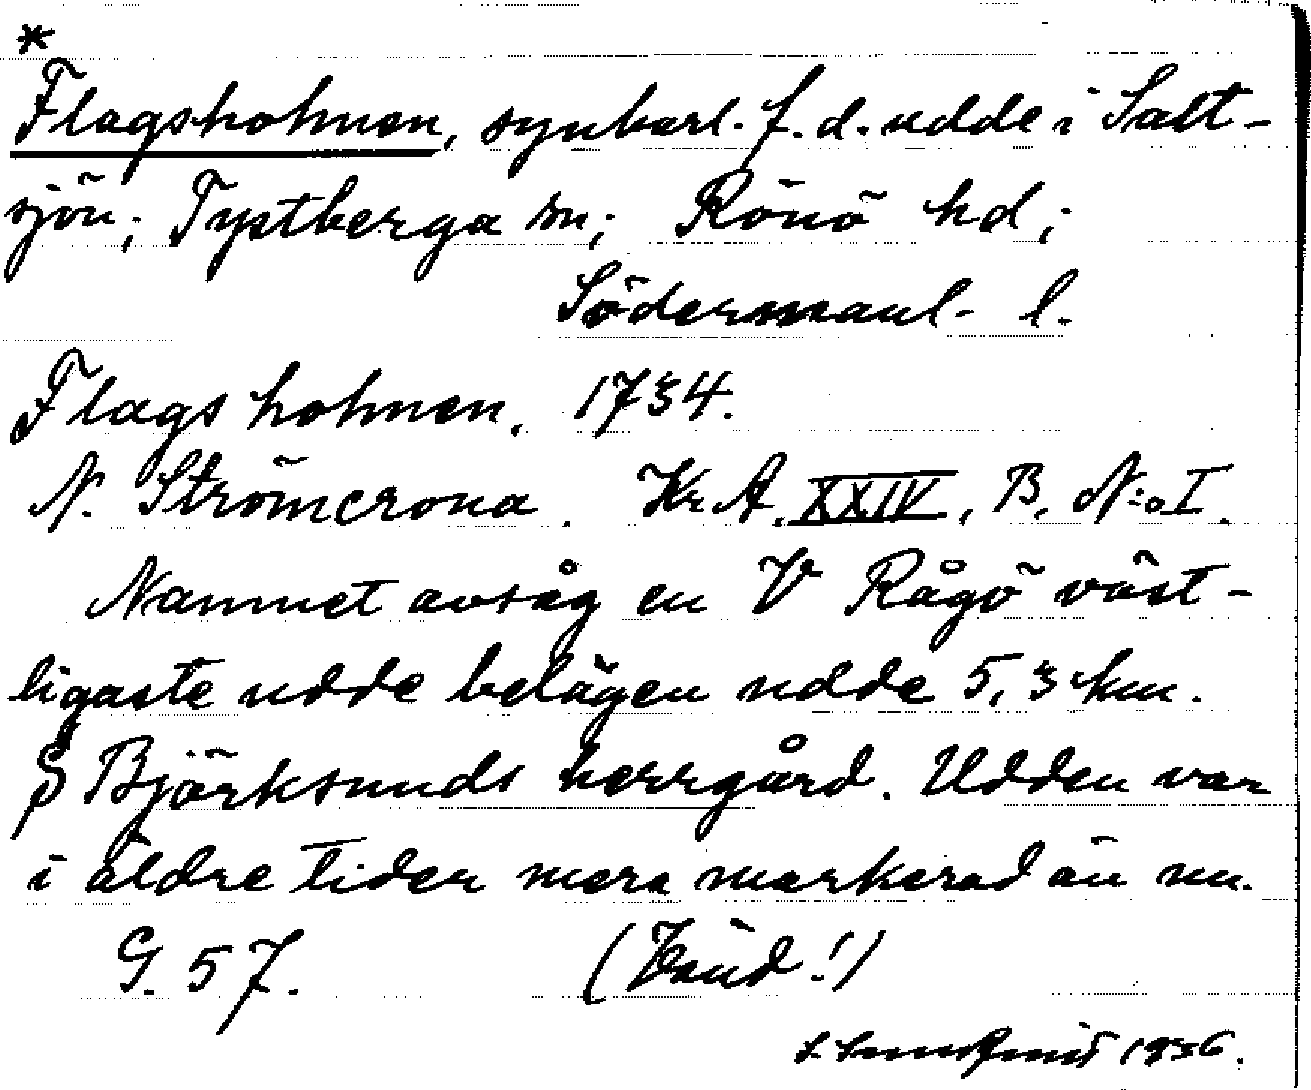 *
Flagsholmen, synbarl. f.d. udde i Salt-
sjön; Tystberga sn; Rönö hd;
Södermanl. l.
Flags holmen, 1734.
N. Strömcrona. Kr. A. XXIV, B, N:o I.
Namnet avsåg en V Rågö väst-
ligaste udde belägen udde 5,3 km.
S Björksunds herrgård. Udden var
i äldre tider mera markerad än nu.
G. 57. (Vänd!)
1936.